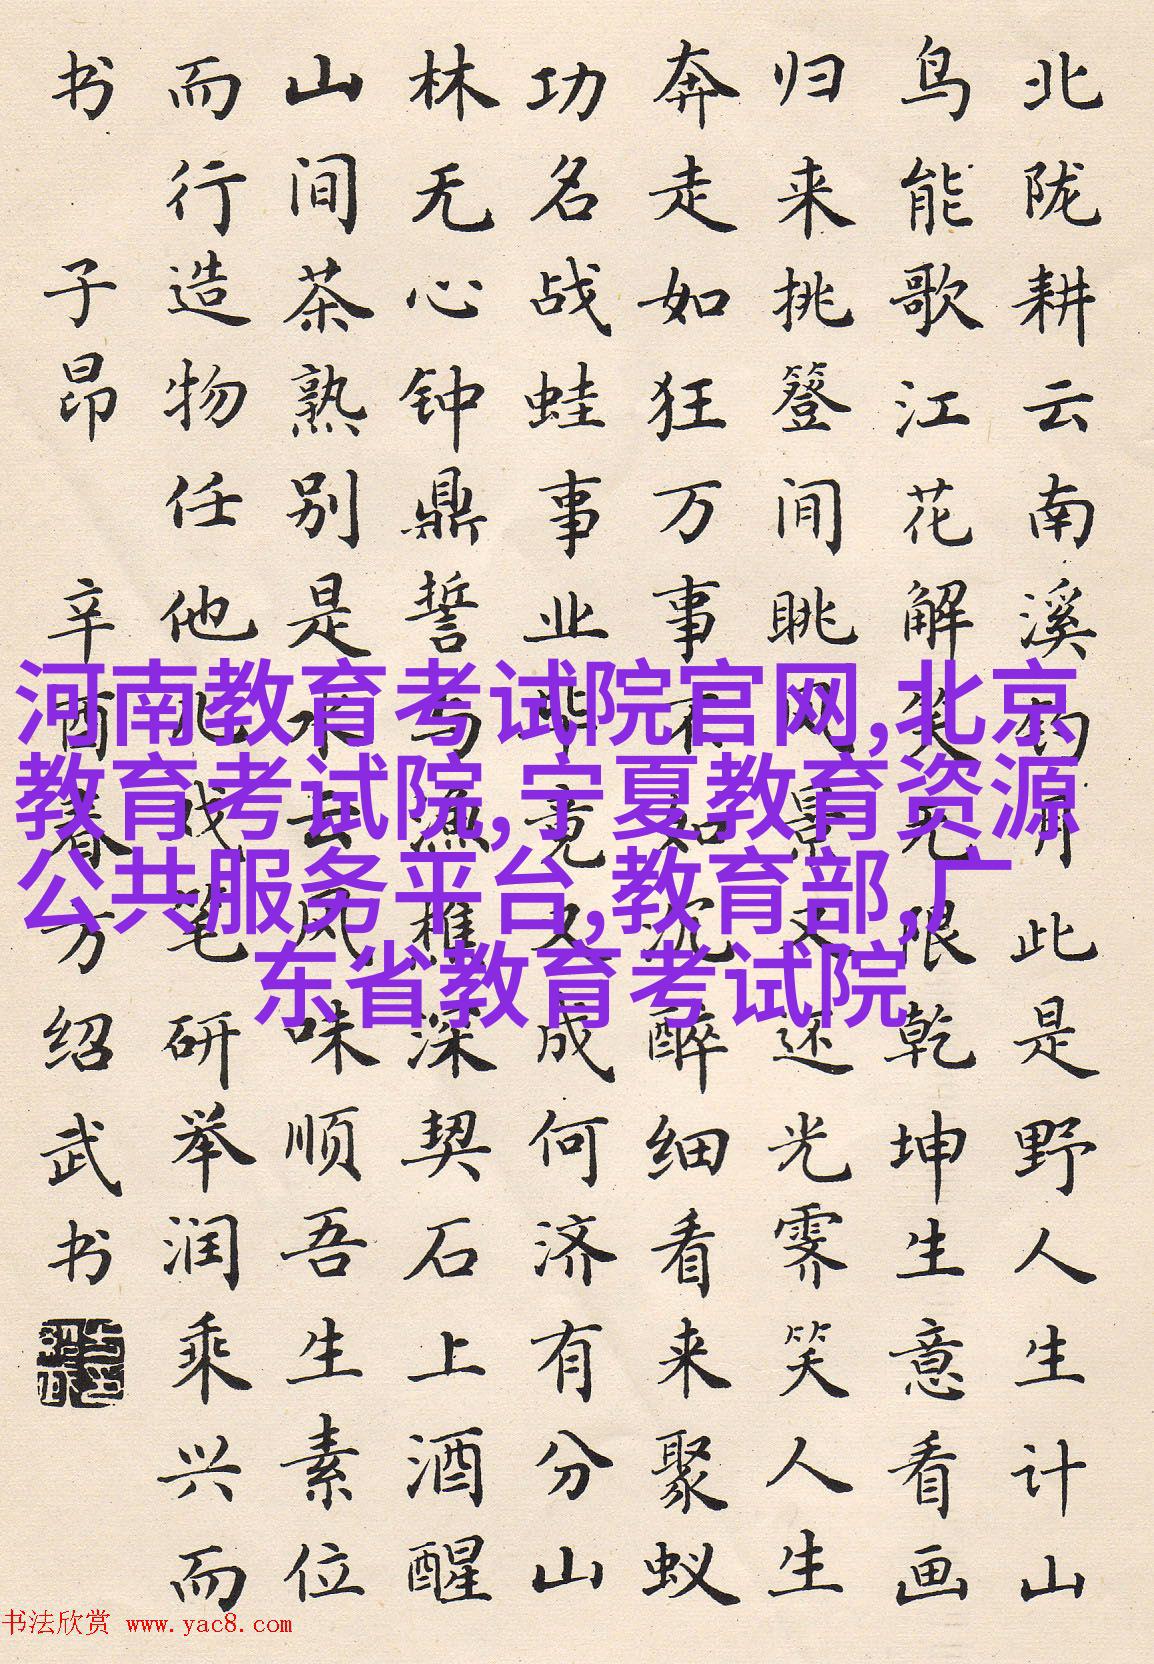 北陇耕云南溪钓月此是野人生计山
鸟能歌江花解笑无限乾坤生意看画
归来挑簦间眺风景又还光霁笑人生
奔走如狂万事不如沉醉细看来聚蚁
功名战蛙事业毕竟又成何济有分山
林无心钟鼎誓与渔樵深契石上酒醒
山间茶熟别是水云风味顺吾生素位
而行造物任他儿戏笔研举润乘兴而
书 子昂 辛酉春方绍武书
河南教育考试院官网,北京
教育考试院,宁夏教育资源
公共服务平台,教育部,广
东省教育考试院
书法欣赏 www.yac8.com